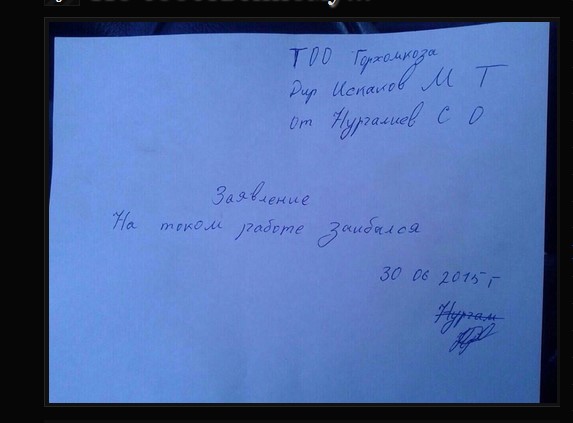 ТОО Горкомхоза
Дир Искаков М Т
от Нургалиев С О
Заявление
На таком работе Заибался
30 06 2015 г
Нургам